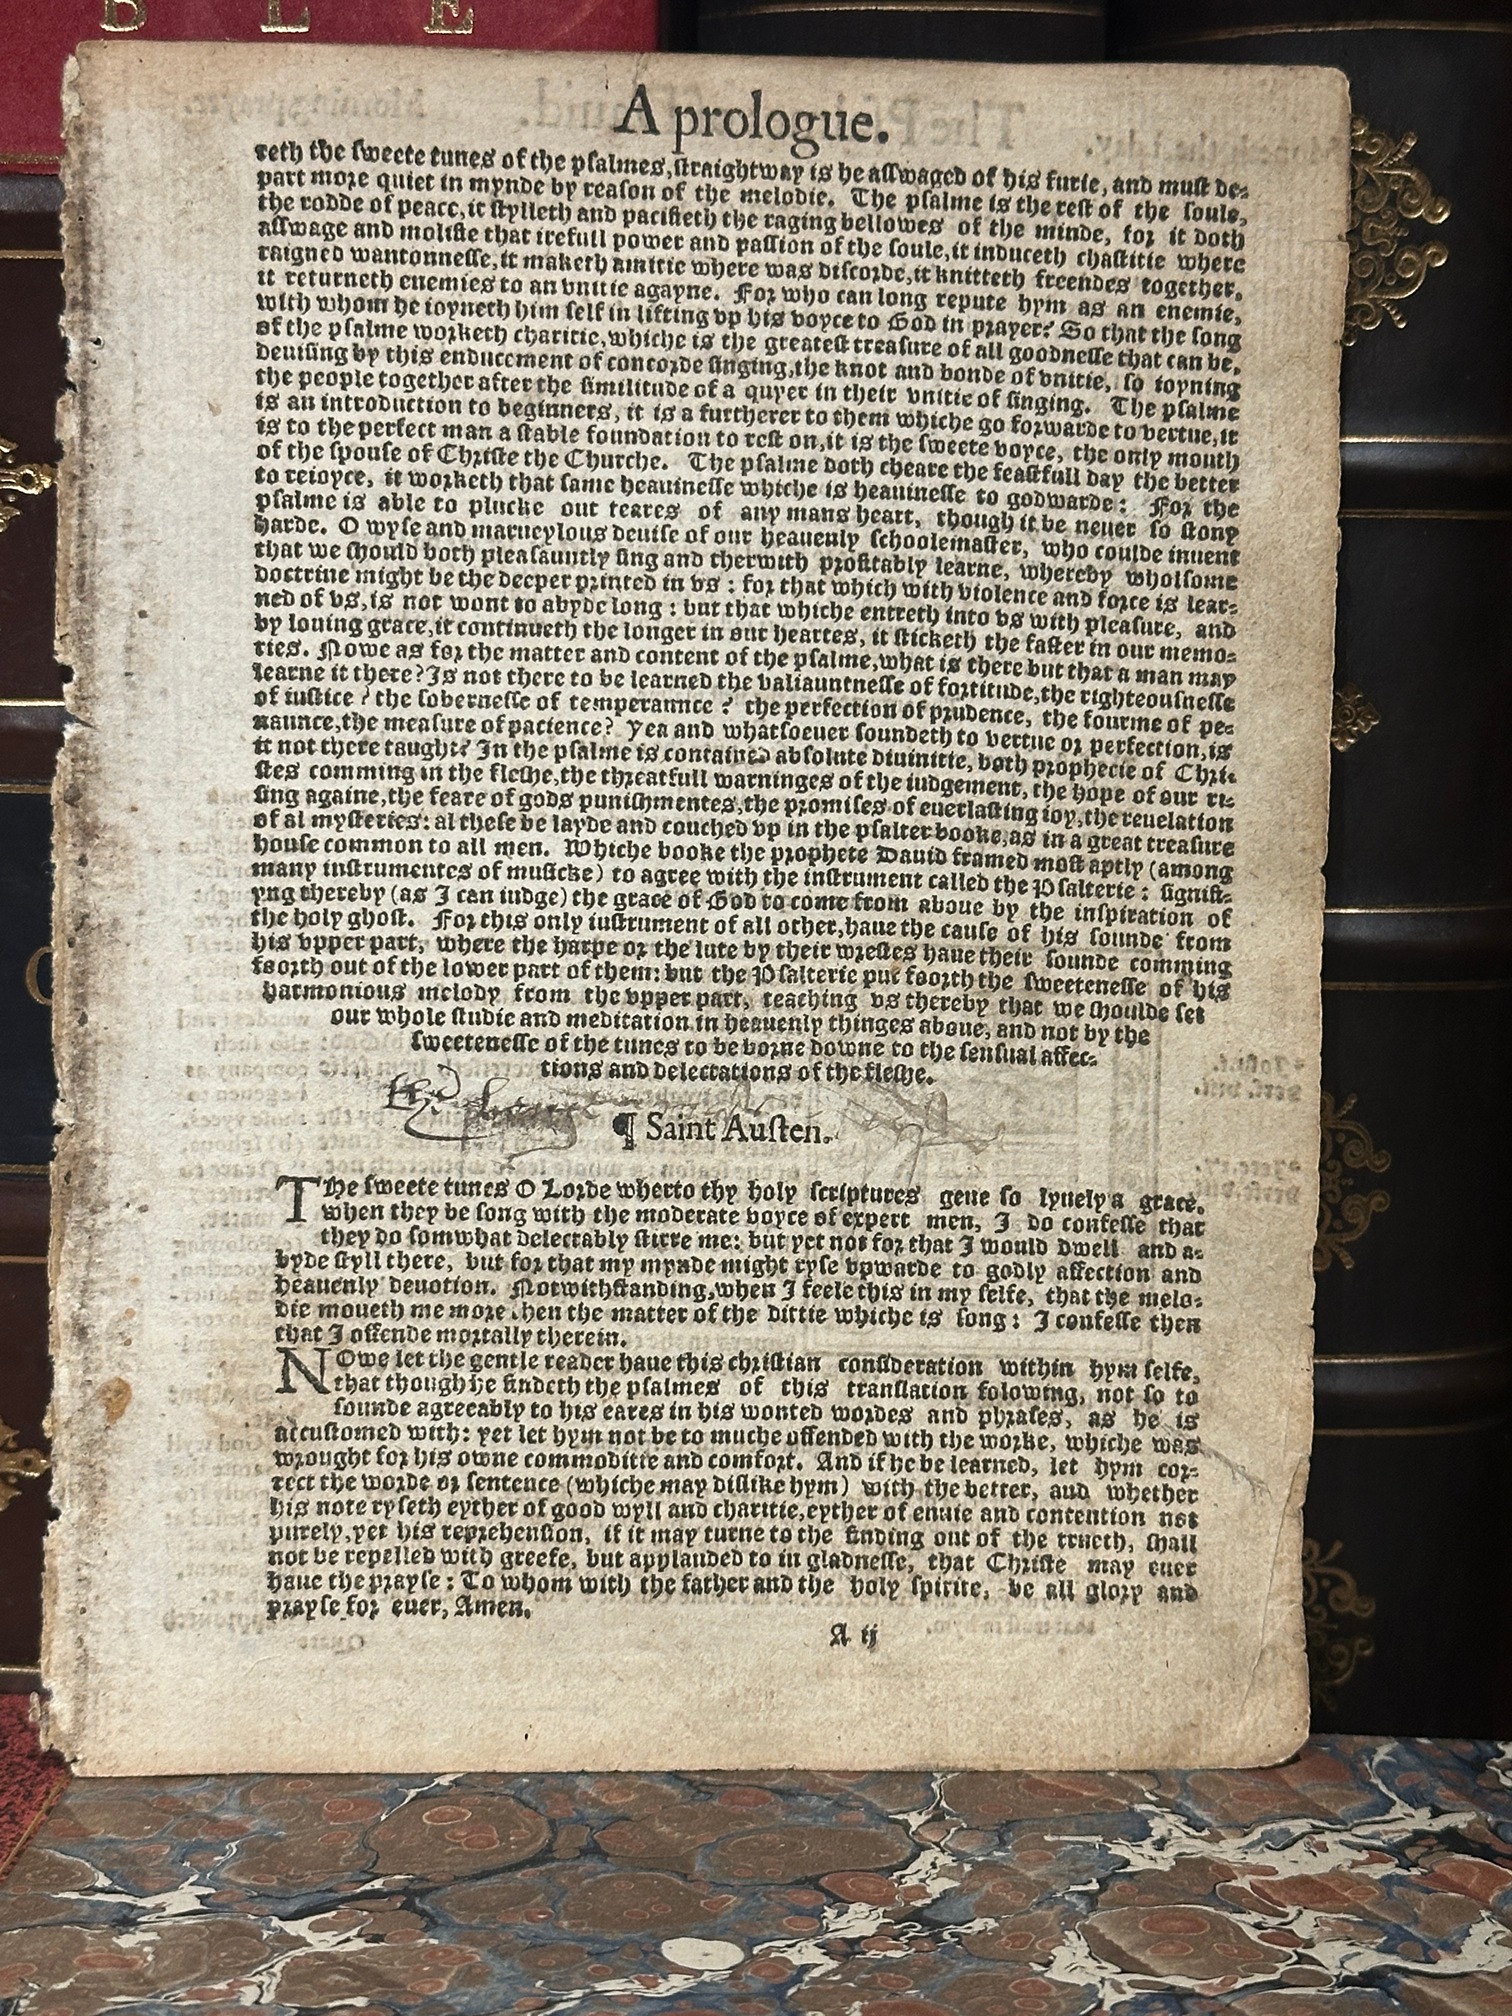 B L E
A prologue.
reth the sweete tunes of the psalmes, straightway is he asswaged of his furie, and must de-
part more quiet in mynde by reason of the melodie. The psalme is the rest of the soule,
the rodde of peace, it stylleth and pacifieth the raging bellowes of the minde, for it doth
asswage and molifie that irefull power and passion of the soule, it induceth chastitie where
raigned wantonnesse, it maketh amitie where was discorde, it knitteth freendes together,
it returneth enemies to an vnitie agayne. For who can long repute hym as an enemie,
with whom he ioyneth him self in lifting vp his voyce to God in prayer? So that the song
of the psalme worketh charitie, whiche is the greatest treasure of all goodnesse that can be,
deuising by this enducement of concorde singing, the knot and bonde of vnitie, so ioyning
the people together after the similitude of a quyer in their vnitie of singing. The psalme
is an introduction to beginners, it is a furtherer to them whiche go forwarde to vertue, it
is to the perfect man a stable foundation to rest on, it is the sweete voyce, the only mouth
of the spouse of Christe the Churche. The psalme doth cheare the feastfull day the better
to reioyce, it worketh that same heauinesse whiche is heauinesse to godwarde: For the
psalme is able to plucke out teares of any mans heart, though it be neuer so stony
harde. O wyse and marueylous deuise of our heauenly schoolemaster, who coulde inuent
that we should both pleasauntly sing and therwith profitably learne, whereby wholsome
doctrine might be the deeper printed in vs: for that which with violence and force is lear-
ned of vs, is not wont to abyde long: but that whiche entreth into vs with pleasure, and
by louing grace, it continueth the longer in our heartes, it sticketh the faster in our memo-
ries. Nowe as for the matter and content of the psalme, what is there but that a man may
learne it there? Is not there to be learned the valiauntnesse of fortitude, the righteousnesse
of iustice? the sobernesse of temperaunce? the perfection of prudence, the fourme of pe-
naunce, the measure of pacience? yea and whatsoeuer soundeth to vertue or perfection, is
it not there taught? In the psalme is contained absolute diuinitie, both prophecie of Chri-
stes comming in the fleshe, the threatfull warninges of the iudgement, the hope of our ri-
sing againe, the feare of gods punishmentes, the promises of euerlasting ioy, the reuelation
of al mysteries: al these be layde and couched vp in the psalter booke, as in a great treasure
house common to all men. Whiche booke the prophete Dauid framed most aptly (among
many instrumentes of musicke) to agree with the instrument called the Psalterie: signifi-
yng thereby (as I can iudge) the grace of God to come from aboue by the inspiration of
the holy ghost. For this only iustrument of all other, haue the cause of his sounde from
his vpper part, where the harpe or the lute by their wrestes haue their sounde comming
foorth out of the lower part of them: but the Psalterie put foorth the sweetenesse of his
harmonious melody from the vpper part, teaching vs thereby that we shoulde set
our whole studie and meditation in heauenly thinges aboue, and not by the
sweetenesse of the tunes to be borne downe to the sensual affec-
tions and delectations of the fleshe.
¶ Saint Austen.
The sweete tunes O Lorde wherto thy holy scriptures geue so lyuely a grace,
when they be song with the moderate voyce of expert men, I do confesse that
they do somwhat delectably stirre me: but yet not for that I would dwell and a-
byde styll there, but for that my mynde might ryse vpwarde to godly affection and
heauenly deuotion. Notwithstanding, when I feele this in my selfe, that the melo-
die moueth me more then the matter of the dittie whiche is song: I confesse then
that I offende mortally therein.
NOwe let the gentle reader haue this christian consideration within hym selfe,
that though he findeth the psalmes of this translation folowing, not so to
sounde agreeably to his eares in his wonted wordes and phrases, as he is
accustomed with: yet let hym not be to muche offended with the worke, whiche was
wrought for his owne commoditie and comfort. And if he be learned, let hym cor-
rect the worde or sentence (whiche may dislike hym) with the better, and whether
his note ryseth eyther of good wyll and charitie, eyther of enuie and contention not
purely, yet his reprehension, if it may turne to the finding out of the trueth, shall
not be repelled with greefe, but applauded to in gladnesse, that Christe may euer
haue the prayse: To whom with the father and the holy spirite, be all glory and
prayse for euer, Amen.
A ij